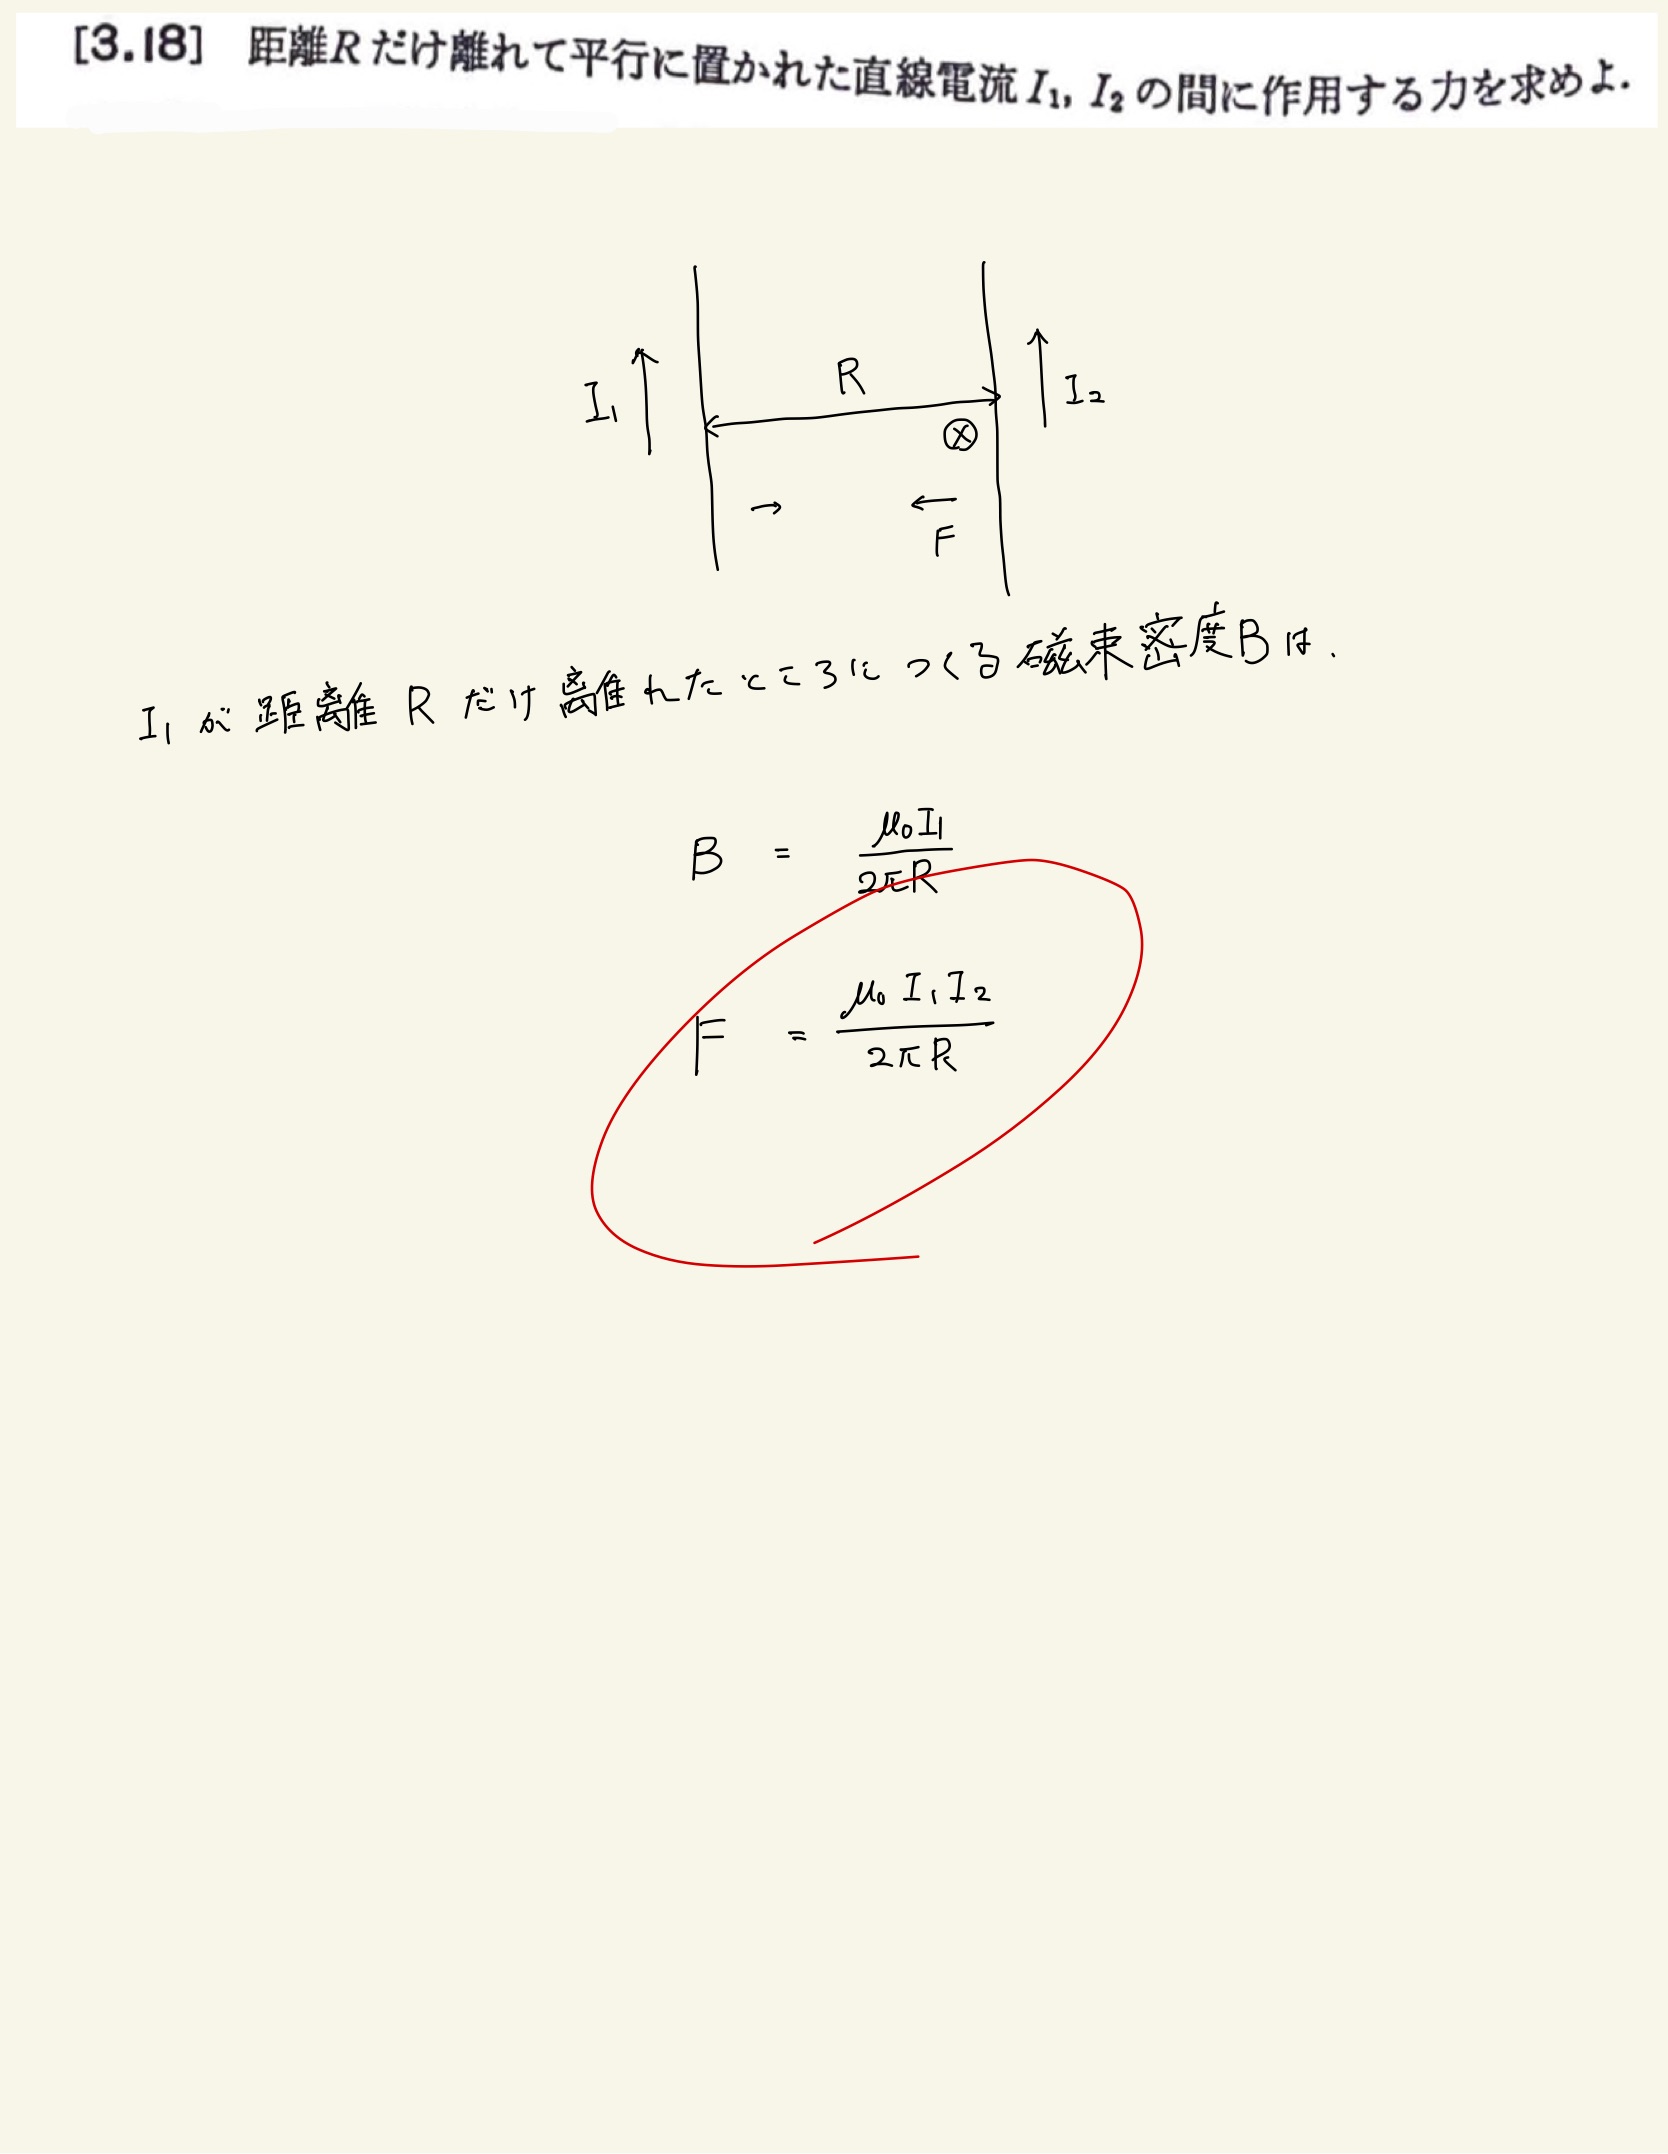 [3.18] 距離Rだけ離れて平行に置かれた直線電流I₁, I₂の間に作用する力を求めよ.
R
I₁
I₂
⊗
F
I₁ が 距離 R だけ 離れたところにつくる磁束密度Bは.
B = μ₀I₁ / 2πR
F = μ₀ I₁ I₂ / 2πR